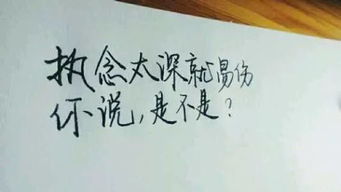 执念太深就易伤
你说,是不是?